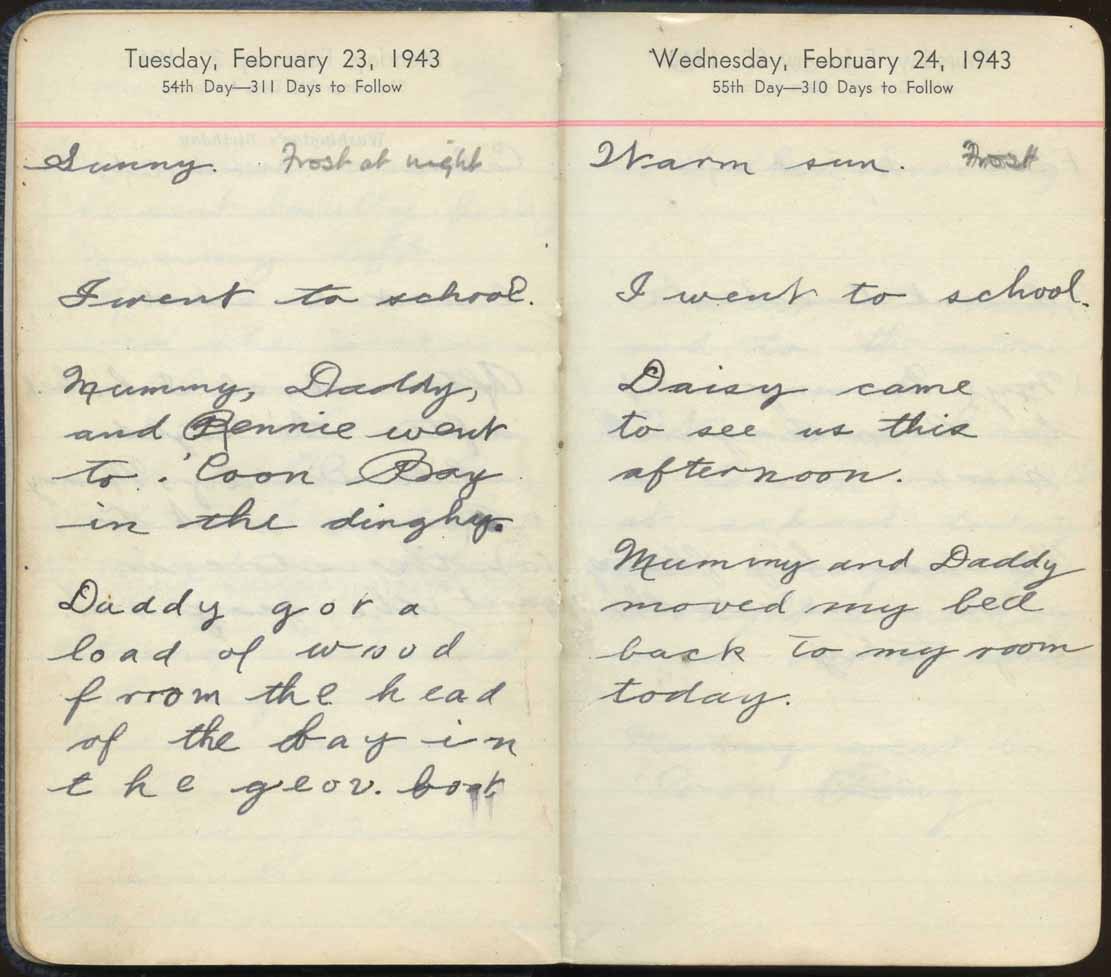 Tuesday, February 23, 1943
54th Day—311 Days to Follow
Sunny. Frost at night
I went to school.
Mummy, Daddy,
and Bennie went
to 'Coon Bay
in the dinghy.
Daddy got a
load of wood
from the head
of the bay in
the geov. boat
Wednesday, February 24, 1943
55th Day—310 Days to Follow
Warm sun. Frost
I went to school.
Daisy came
to see us this
afternoon.
Mummy and Daddy
moved my bed
back to my room
today.